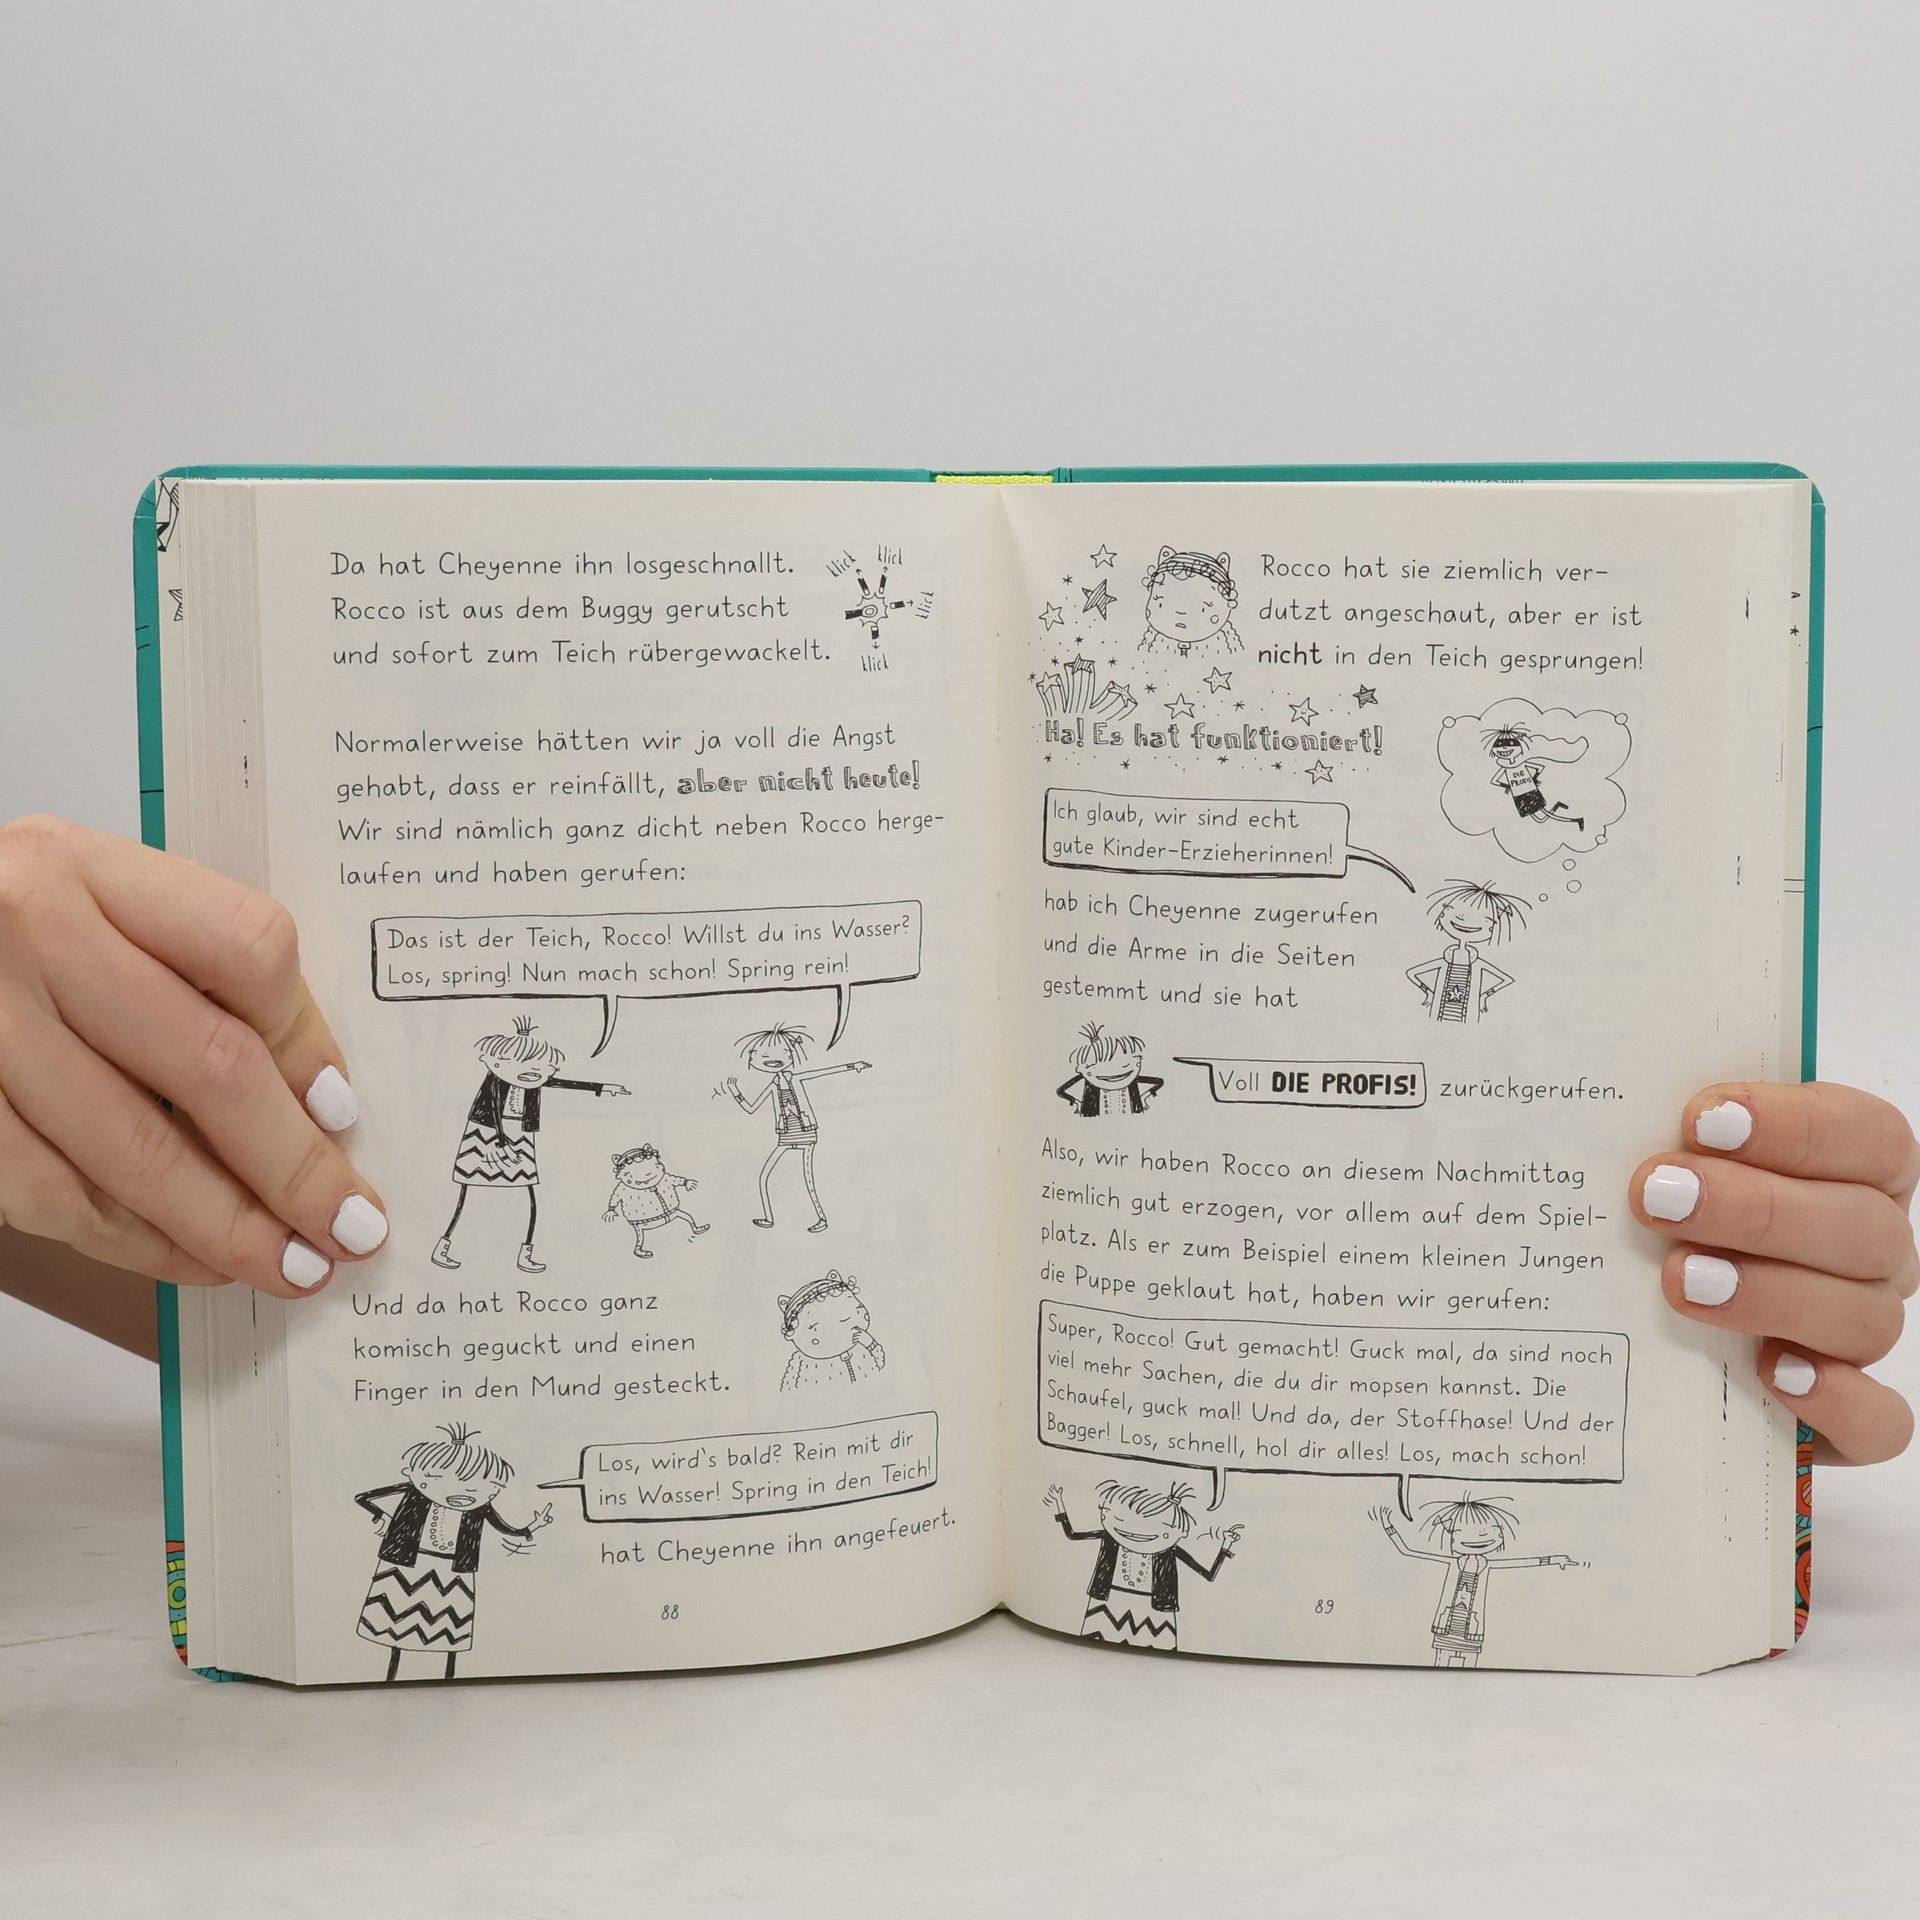 Da hat Cheyenne ihn losgeschnallt.
Rocco ist aus dem Buggy gerutscht
und sofort zum Teich rübergewackelt.
klick
klick
klick
klick
Normalerweise hätten wir ja voll die Angst
gehabt, dass er reinfällt, aber nicht heute!
Wir sind nämlich ganz dicht neben Rocco herge-
laufen und haben gerufen:
Das ist der Teich, Rocco! Willst du ins Wasser?
Los, spring! Nun mach schon! Spring rein!
Und da hat Rocco ganz
komisch geguckt und einen
Finger in den Mund gesteckt.
Los, wird's bald? Rein mit dir
ins Wasser! Spring in den Teich!
hat Cheyenne ihn angefeuert.
88
Rocco hat sie ziemlich ver-
dutzt angeschaut, aber er ist
nicht in den Teich gesprungen!
Ha! Es hat funktioniert!
DIE
PROFIS
Ich glaub, wir sind echt
gute Kinder-Erzieherinnen!
hab ich Cheyenne zugerufen
und die Arme in die Seiten
gestemmt und sie hat
Voll DIE PROFIS! zurückgerufen.
Also, wir haben Rocco an diesem Nachmittag
ziemlich gut erzogen, vor allem auf dem Spiel-
platz. Als er zum Beispiel einem kleinen Jungen
die Puppe geklaut hat, haben wir gerufen:
Super, Rocco! Gut gemacht! Guck mal, da sind noch
viel mehr Sachen, die du dir mopsen kannst. Die
Schaufel, guck mal! Und da, der Stoffhase! Und der
Bagger! Los, schnell, hol dir alles! Los, mach schon!
89